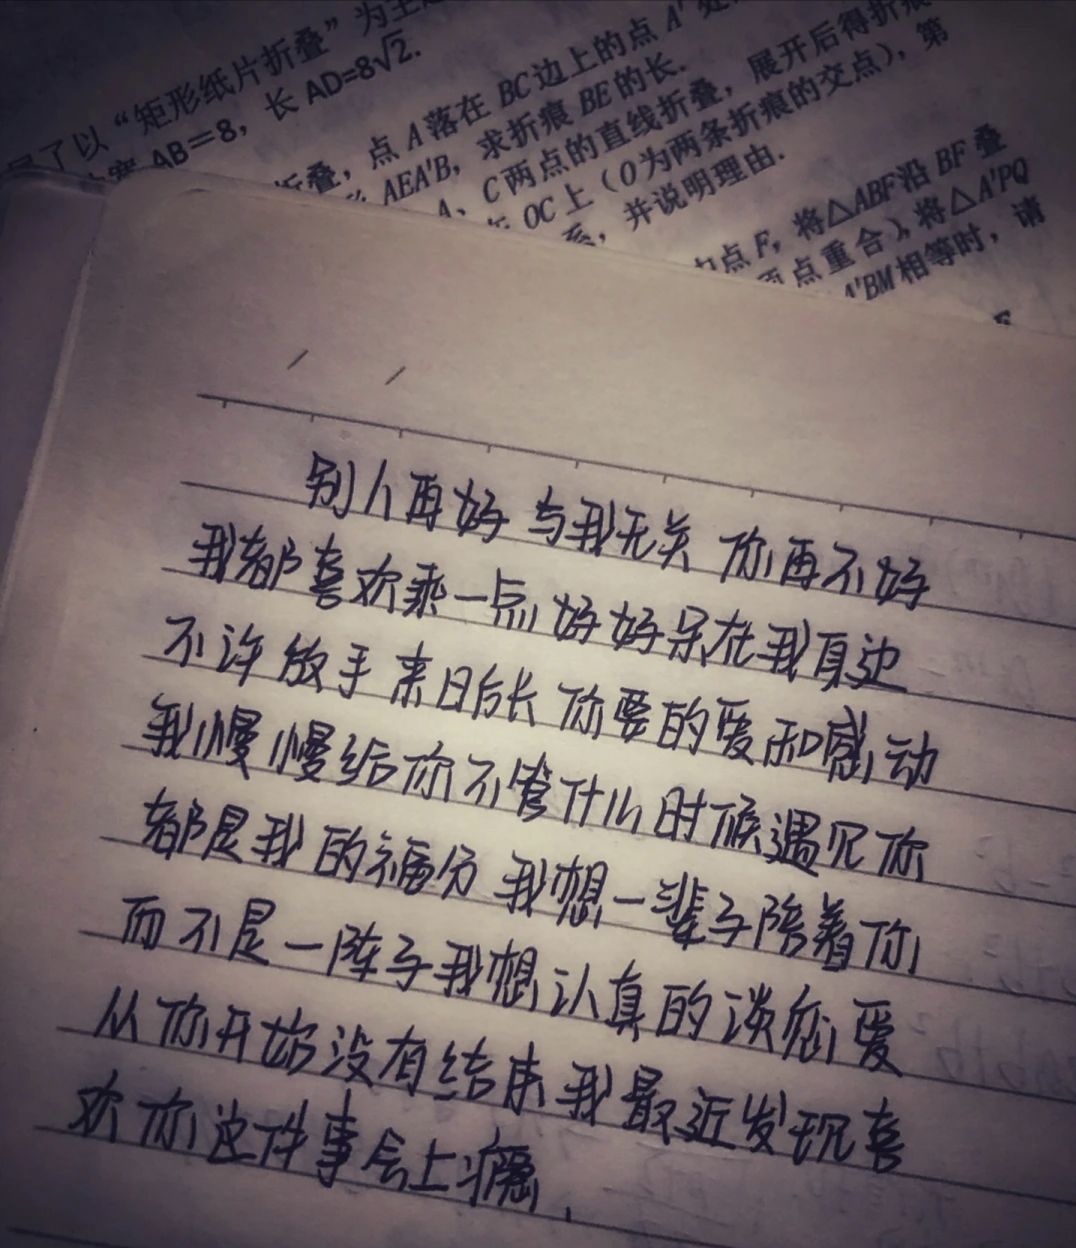 了以“矩形纸片折叠”为主
AB=8，长 AD=8√2.
折叠，点 A 落在 BC 边上的点 A′
AEA′B，求折痕 BE 的长.
A、C 两点的直线折叠，展开后得折痕
OC 上（O 为两条折痕的交点），第
系，并说明理由.
点 F，将△ABF 沿 BF 叠
两点重合），将△A′PQ
A′BM 相等时，请
别人再好 与我无关 你再不好
我都喜欢乖一点 好好呆在我身边
不许放手 来日方长 你要的爱和感动
我慢慢给你不管什么时候遇见你
都是我的福份 我想一辈子陪着你
而不是一阵子我想认真的谈恋爱
从你开始没有结束 我最近发现喜
欢你这件事会上瘾、